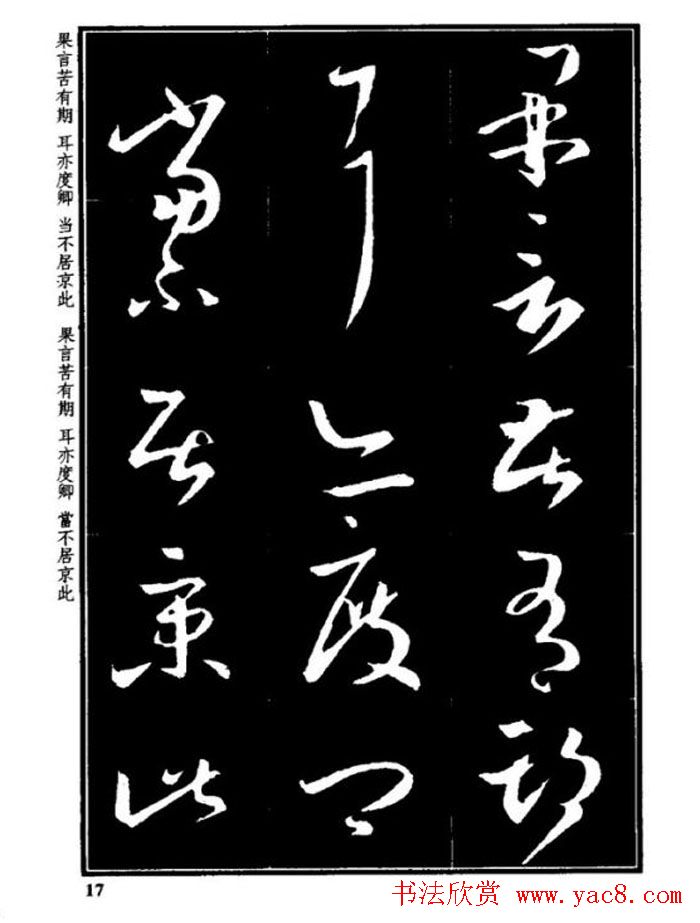 果言苦有期
耳亦度卿
當不居京此
果言苦有期 耳亦度卿 当不居京此
果言苦有期 耳亦度卿 當不居京此
17
书法欣赏 www.yac8.com